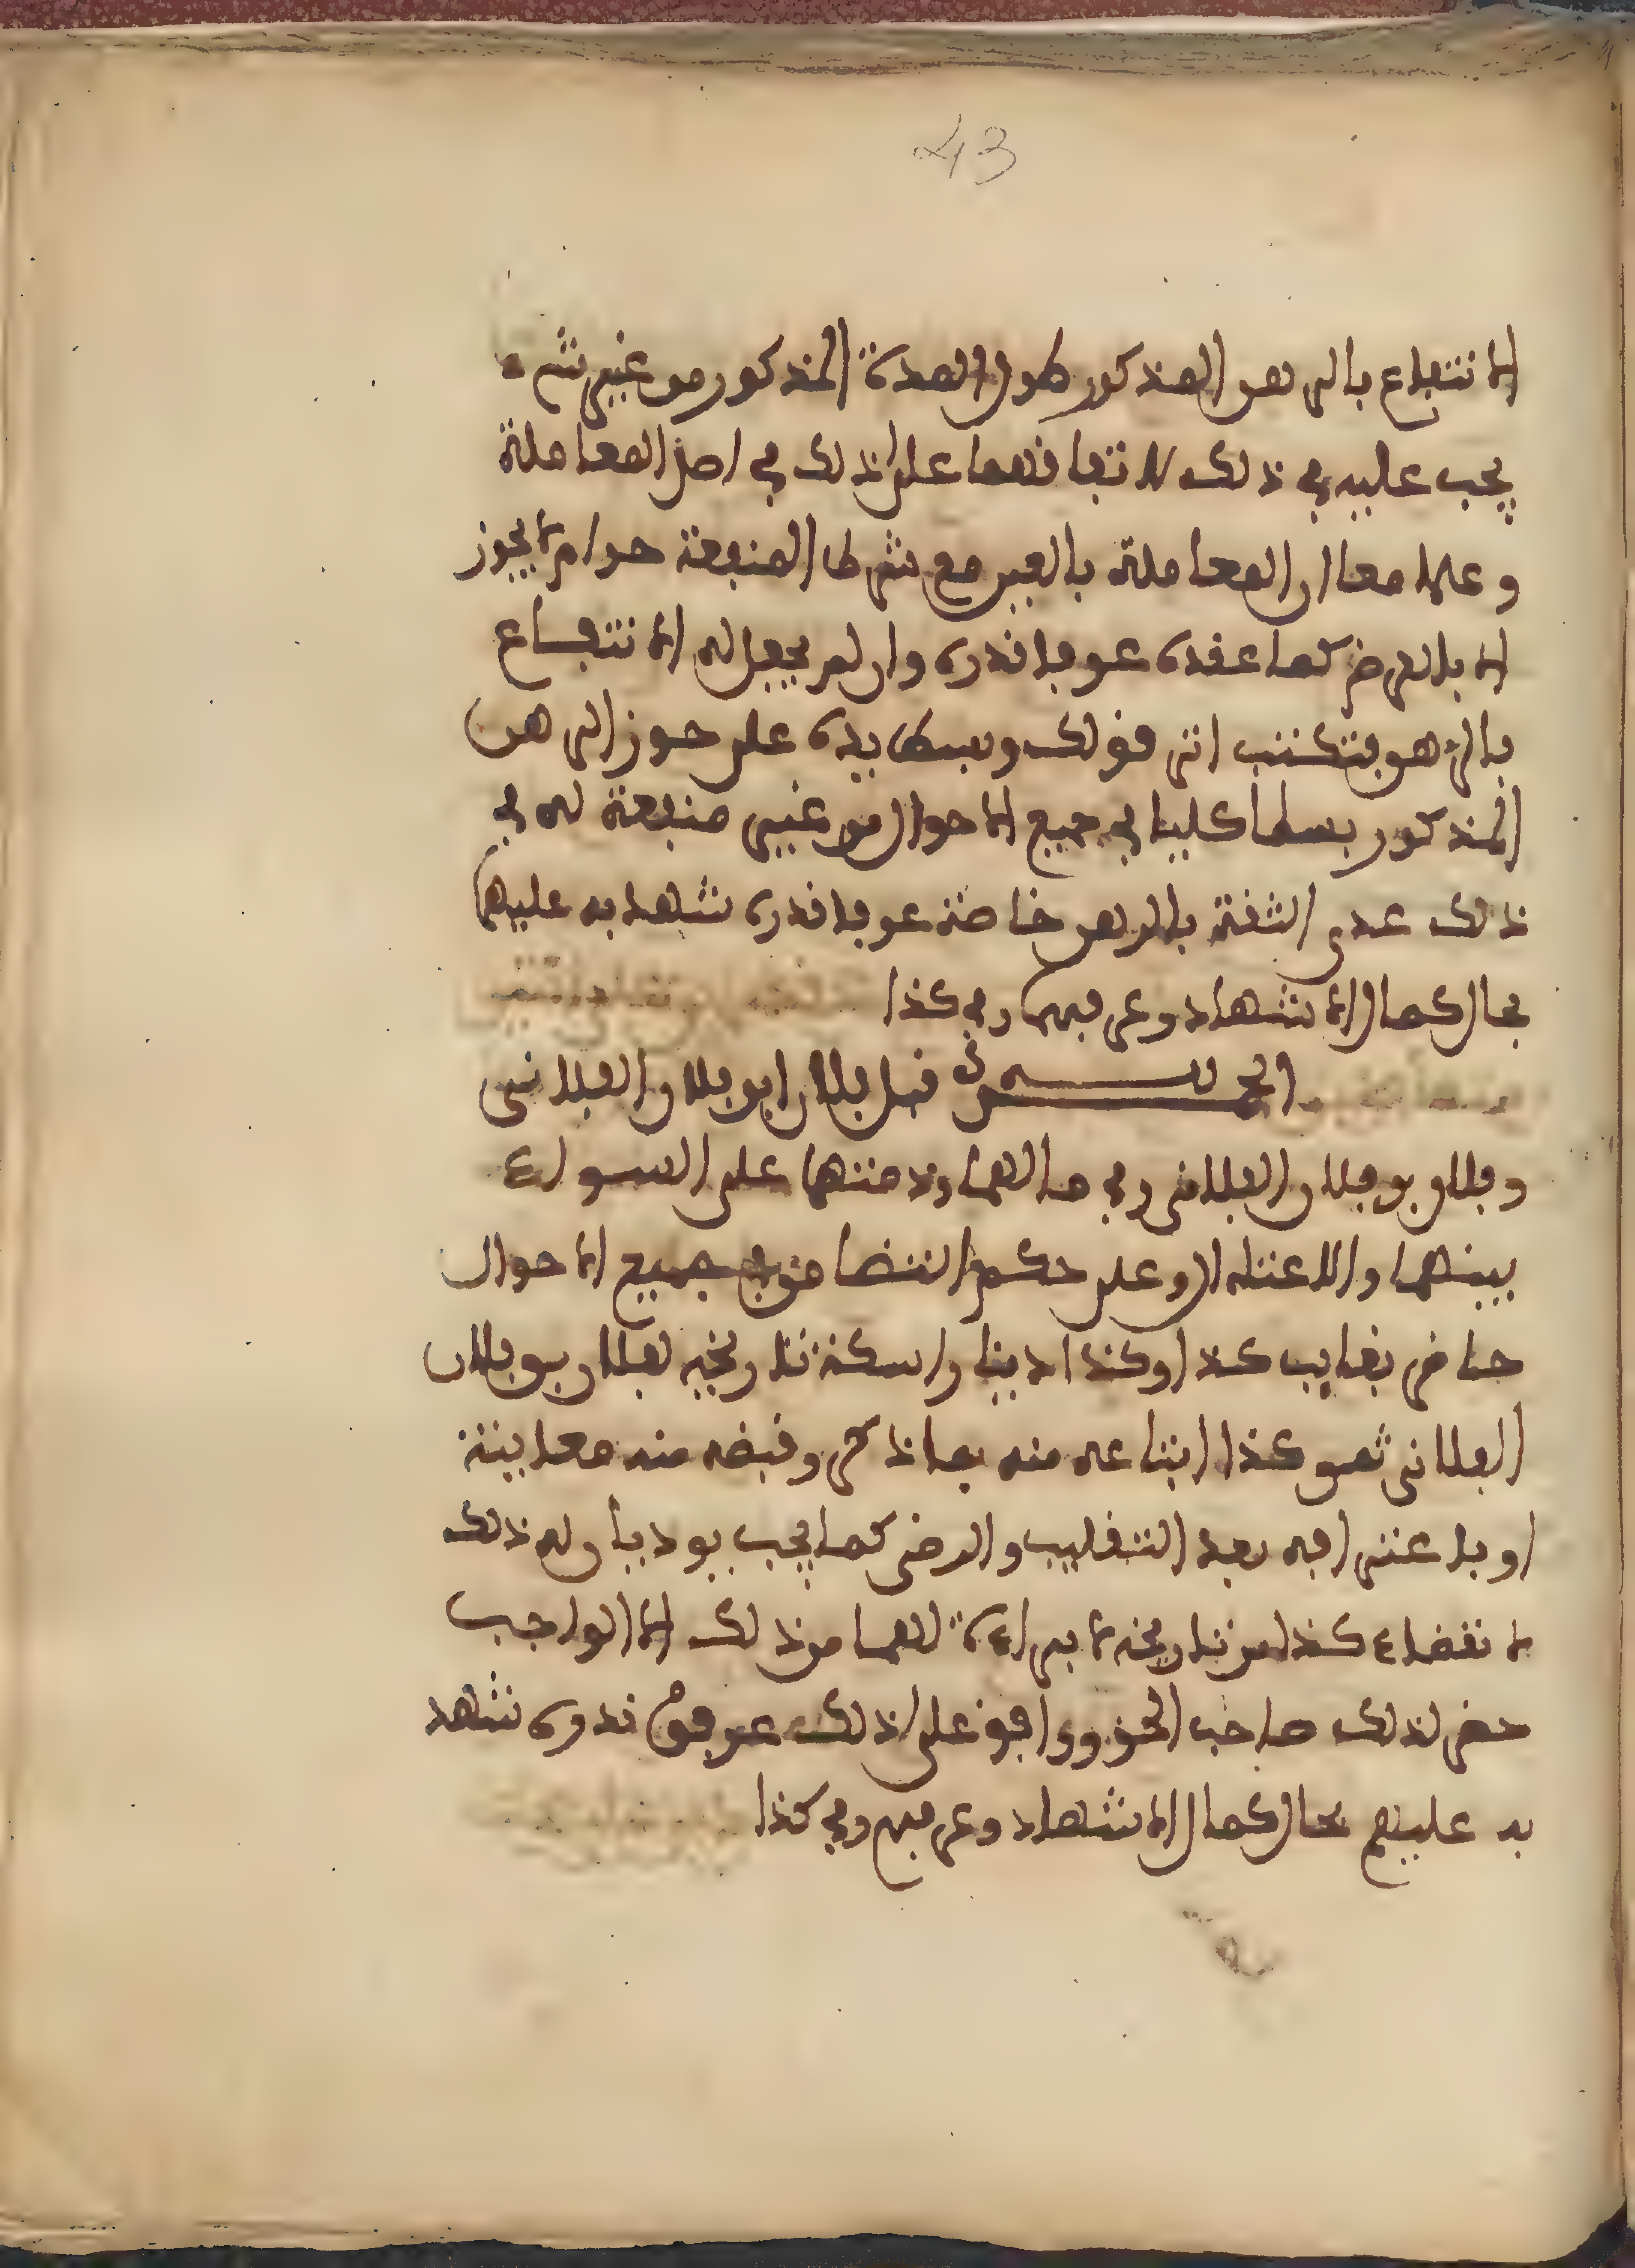 43
الانتفاع بالرهن المذكور طول المدة المذكور من غير شيء
يجب عليه في ذلك لاتفاقهما على ذلك في اصل المعاملة
وعلما معا ان المعاملة بالعين مع شرط المنفعة حرام لا يجوز
الا بالعرض كما عقده عرفا قدره وان لم يجعل له الانتفاع
بالرهن فتكتب اثر قولك وبسط يده على حوز الرهن
المذكور بسطا كليا في جميع الاحوال من غير منفعة له في
ذلك عدى الثقة بالرهن خاصة عرفا قدره شهد به عليهما
بحال كمال الاشهاد وعرفهما وفي كذا
الحمد لله قبل فلان ابن فلان الفلاني
وفلان بن فلان الفلاني وفي مالهما وذمتهما على السواء
بينهما والاعتدال وعلى حكم التضامن في جميع الاحوال
حاضر بغايب كذا وكذا دينارا سكة تاريخه لفلان بن فلان
الفلاني ثمن كذا ابتاعه منه بما ذكر وقبضه منه معاينة
او باعترافه بعد التقليب والرضى كما يجب يوديان له ذلك
لانقضاء كذا من تاريخه لا براءة لهما من ذلك الا الواجب
حضر لذلك صاحب الحق ووافق على ذلك عرفوا قدره شهد
به عليهم بحال كمال الاشهاد وعرفهم وفي كذا